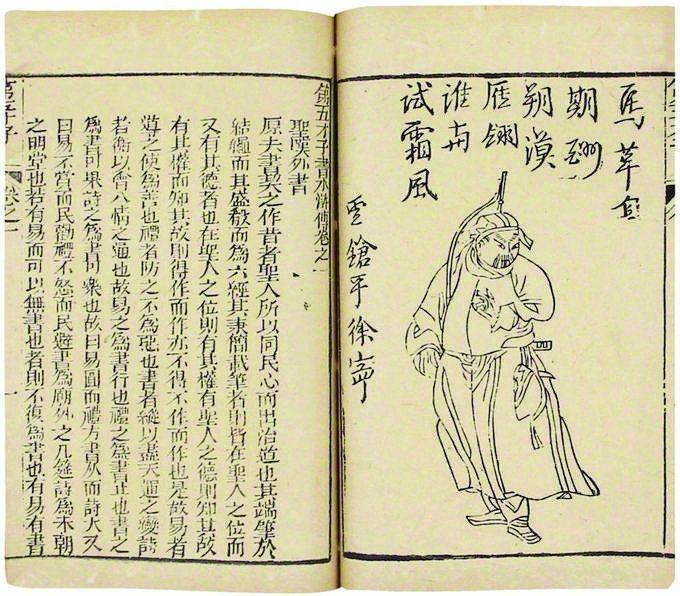 第五才子
馬萃宜
期
朔漠
雁翎
誰与
试霜風
鎗手徐寧
第五才子書水滸傳卷之一
聖嘆外書
原夫書契之作昔者聖人所以同民心而出治道也其端肇於
結繩而其盛殽而為六經其秉簡載筆者則皆在聖人之位而
又有其德者也在聖人之位則有其權有聖人之德則知其故
有其權而知其故則得作而作亦不得不作而作也是故易者
導之使為善也禮者防之不為惡也書者縱以盡天運之變詩
者衡以會人情之通也故易之為書行也禮之為書止也書之
為書可畏詩之為書可樂也故曰易圓而禮方書久而詩大又
曰易不賞而民勸禮不怒而民避書為廟外之几筵詩為未朝
之明堂也若有易而可以無書也者則不復為書也有易有書
第五才子 卷之一 一